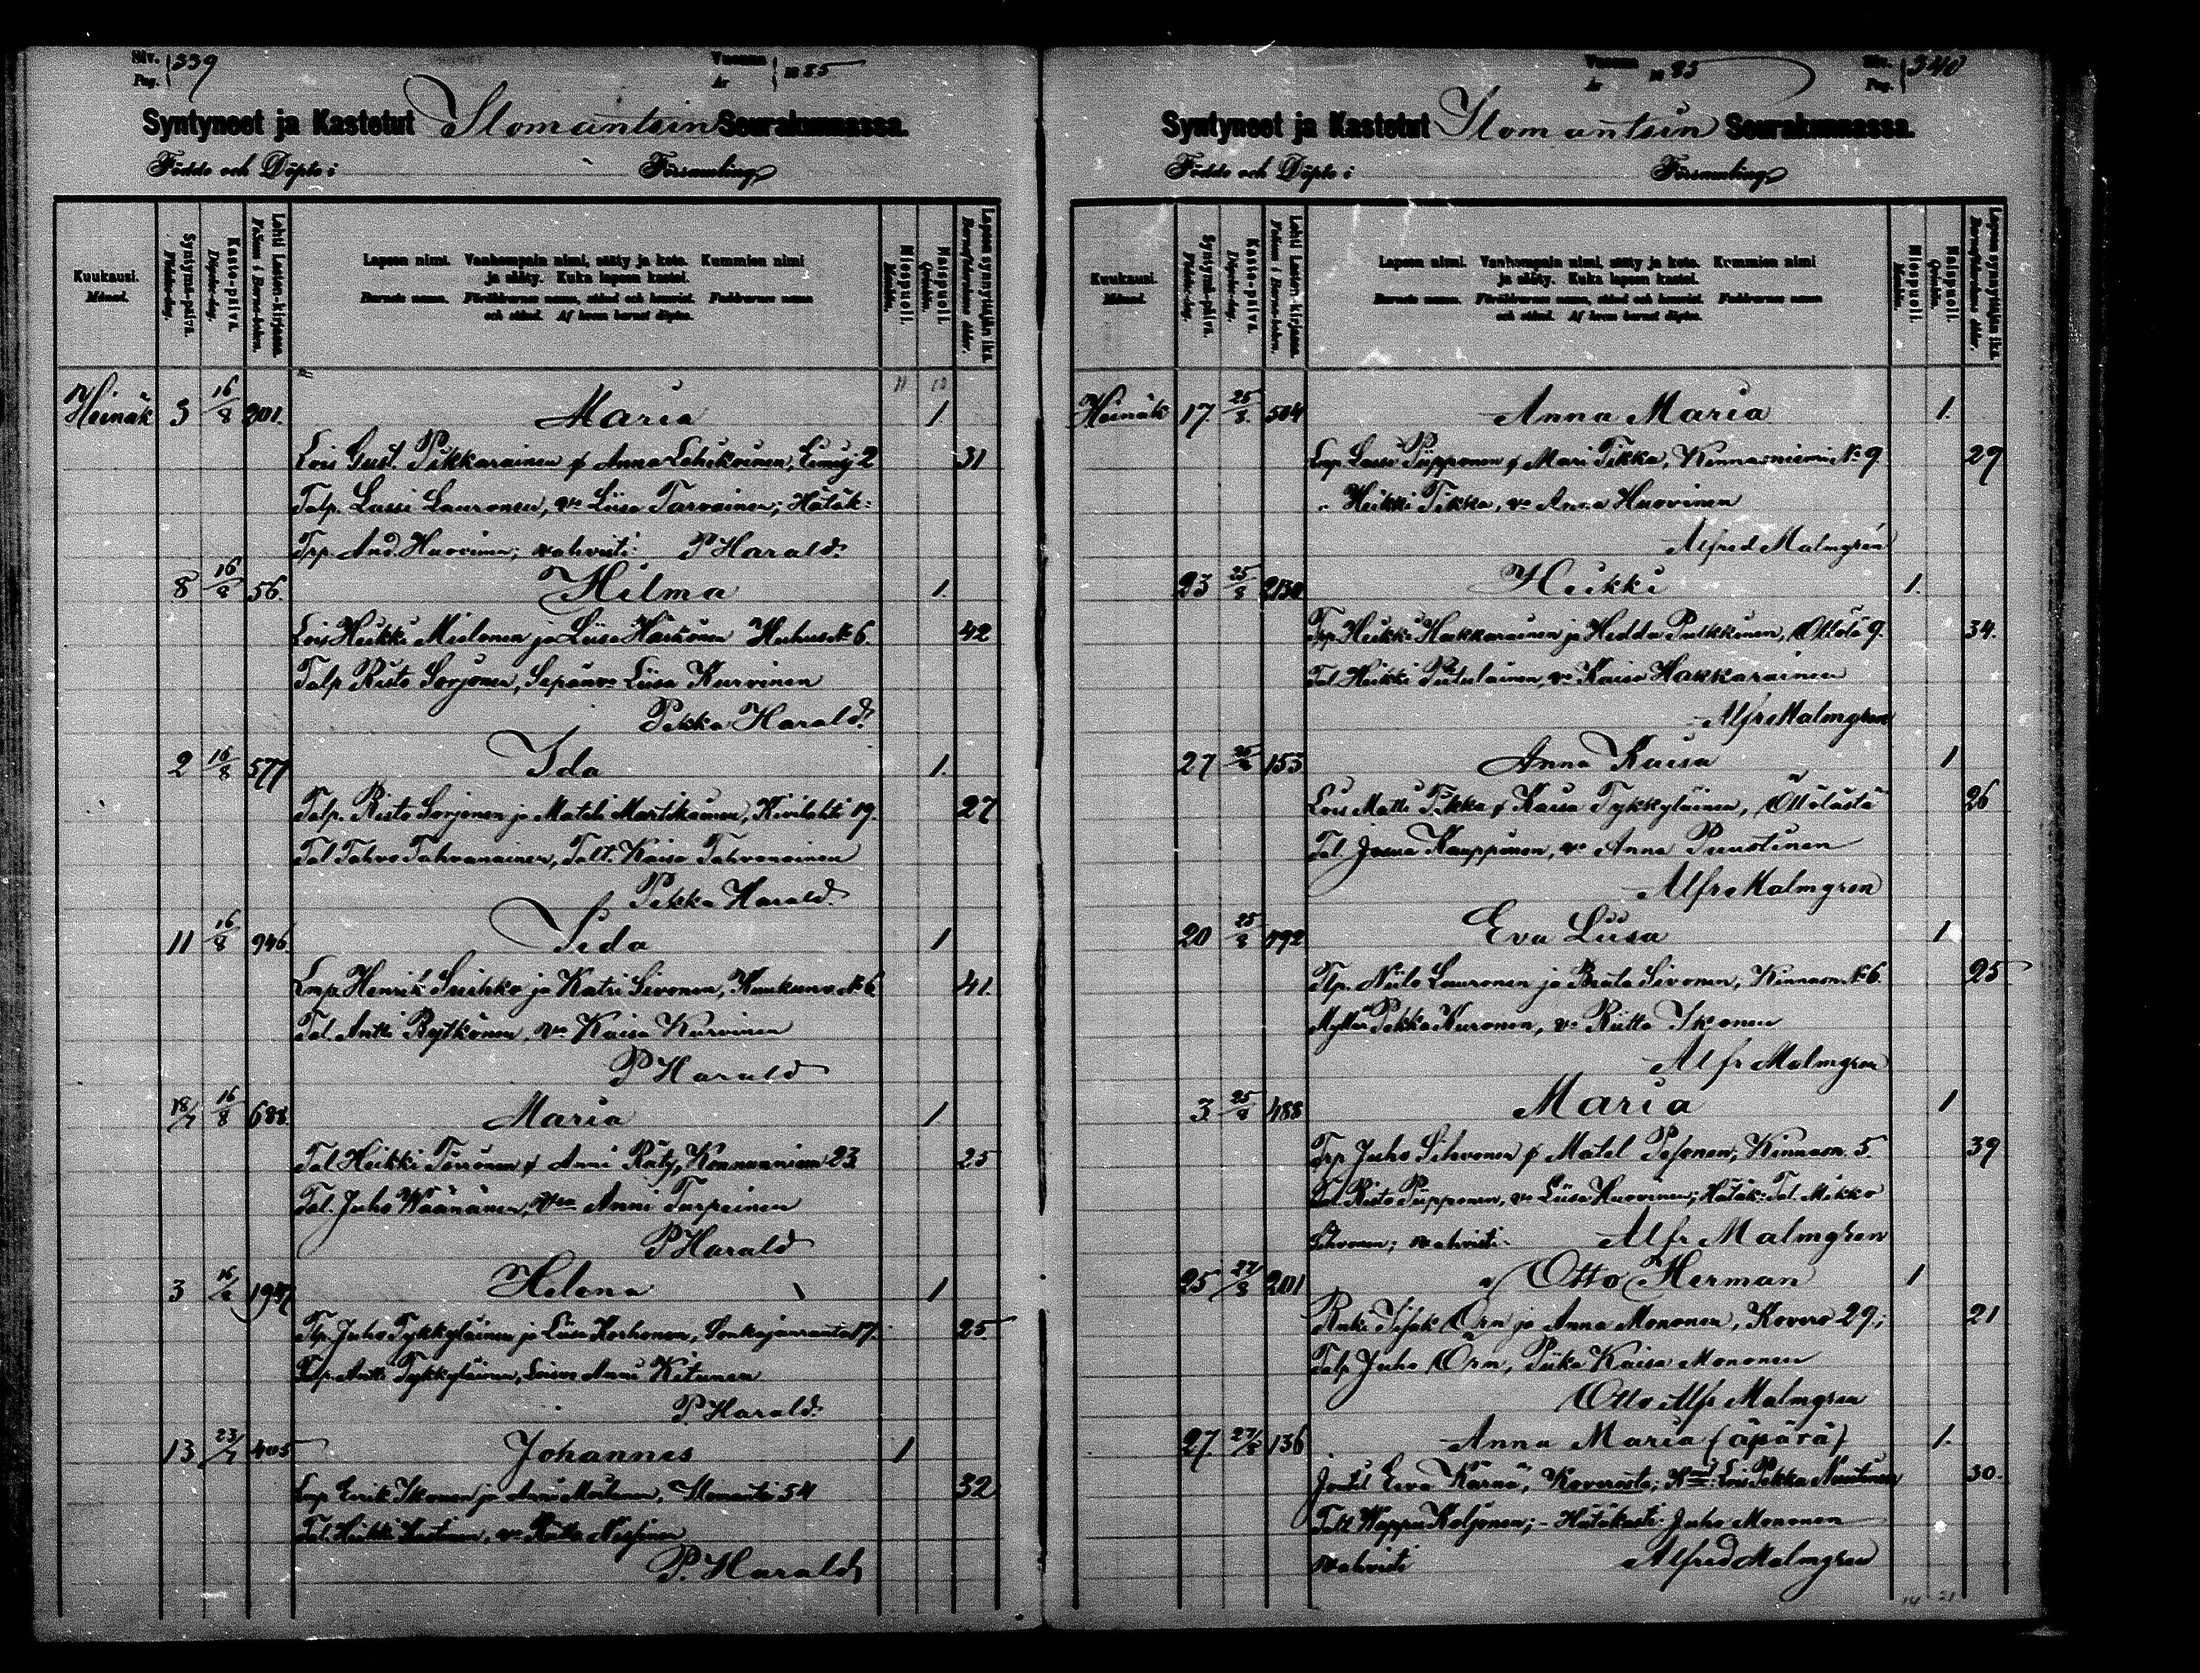 Siv. Pag. 339 Vuonna År 1885
Syntyneet ja Kastetut Ilomantsin Seurakunnassa.
Födde och Döpte i Församling
Kuukausi. Månad.
Syntymä-päivä. Födelse-dag.
Kaste-päivä. Döpelse-dag.
Lehti Lasten-kirjassa. Folium i Barna-boken.
Lapsen nimi. Vanhempain nimi, sääty ja koto. Kummien nimi
ja sääty. Kuka lapsen kastoi.
Barnets namn. Föräldrarnes namn, stånd och hemvist. Faddrarnes namn
och stånd. Af hvem barnet döptes.
Miespuoli. Mankön.
Naispuoli. Qvinkön.
Lapsen synnyttäjän ikä. Barnaföderskans ålder.
Heinäk 3 16/8 201. Maria 1.
Lois Gust. Pikkarainen & Anna Lehikoinen, 2 31
Talp. Lassi Lauronen, vo Liisa Tarvainen; Hätäk:
Trp And. Huovinen; vahvisti: P Harald.
8 16/8 56. Hilma 1.
Lois Heikki Mielonen ja Liisa Härkönen Huhus No 6. 42
Talp Risto Sorjonen, Sepän vo Liisa Kurvinen
Pekka Harald.
2 16/8 577 Ida 1.
Talp. Risto Sorjonen ja Mateli Martikainen, Kivilahti 19. 27
Tal Tahvo Tahvanainen, Talt. Kaisa Tahvanainen
Pekka Harald.
11 16/8 946. Iida 1
Lmp. Henrik Suihko ja Katri Sivonen, No 6 41.
Tal. Antti Rytkönen, vo Kaisa Kurvinen
P Harald
18/7 16/8 688. Maria 1.
Tal Heikki Törrönen & Anni Räty, 23 25
Tal. Juho Wäänänen, vo Anni Turpeinen
P Harald
3 16/8 1947 Helena 1
Tlp. Juho Tykkyläinen ja Liisa Korhonen, Sonkajanranta 17. 25
Tlp Antti Tykkyläinen, Loisvo Anni Kitunen
P. Harald.
13 23/7 405 Johannes 1
Lmp Eerik Ikonen ja Anni, Ilomantsi 54 32
Tal. Heikki, vo Riitta Nissinen
P. Harald
Vuonna År 1885 Siv. Pag. 340
Syntyneet ja Kastetut Ilomantsin Seurakunnassa.
Födde och Döpte i Församling
Kuukausi. Månad.
Syntymä-päivä. Födelse-dag.
Kaste-päivä. Döpelse-dag.
Lehti Lasten-kirjassa. Folium i Barna-boken.
Lapsen nimi. Vanhempain nimi, sääty ja koto. Kummien nimi
ja sääty. Kuka lapsen kastoi.
Barnets namn. Föräldrarnes namn, stånd och hemvist. Faddrarnes namn
och stånd. Af hvem barnet döptes.
Miespuoli. Mankön.
Naispuoli. Qvinkön.
Lapsen synnyttäjän ikä. Barnaföderskans ålder.
Heinäk 17. 25/8. 504 Anna Maria 1.
Lmp. Lassi Piipponen & Mari Tikka, Kinnasniemi No 9. 29
" Heikki Tikka, vo Anna Huovinen
Alfred Malmgrén
23 25/8 2130 Heikki 1.
Trp. Heikki Hakkarainen ja Hedda Pulkkinen, Öttölä 9. 34.
Tal Heikki Putulainen, vo Kaisa Hakkarainen
Alfr Malmgren
27 25/8 153 Anna Kaisa 1
Lois Matti Tikka & Kaisa Tykkyläinen, Öttölästä 26
Tal. Josua Kauppinen, vo Anna Puustinen
Alfr Malmgren
20 25/8 792 Eva Liisa 1
Tlp. Niilo Lauronen ja Beata Sivonen, Kinnasn. No 6. 25
Mylläri Pekka Kuronen, vo Riitta Ikonen
Alfr Malmgren
3. 25/8 488 Maria 1
Trp Juho Sihvonen & Matel Pesonen, Kinnasn. 5. 39
Tal Risto Piipponen, vo Liisa Huovinen; Hätäk: Tal. Mikko
Sihvonen; vahvisti. Alfr Malmgren
25 27/8 201 Otto Herman 1
Renki Isak Örn ja Anna Mononen, Kovero 29; 21
Talp Juho Örn, Piika Kaisa Mononen
Otto Alfr Malmgren
27. 27/8 136 Anna Maria (äpärä) 1.
Eeva Kärnä, Koverosta; Kmt: Lois Pekka Nuutinen 30.
Talt Wappu Koljonen; - Hätäkasti Juho Mononen
vahvisti Alfred Malmgren
14 21